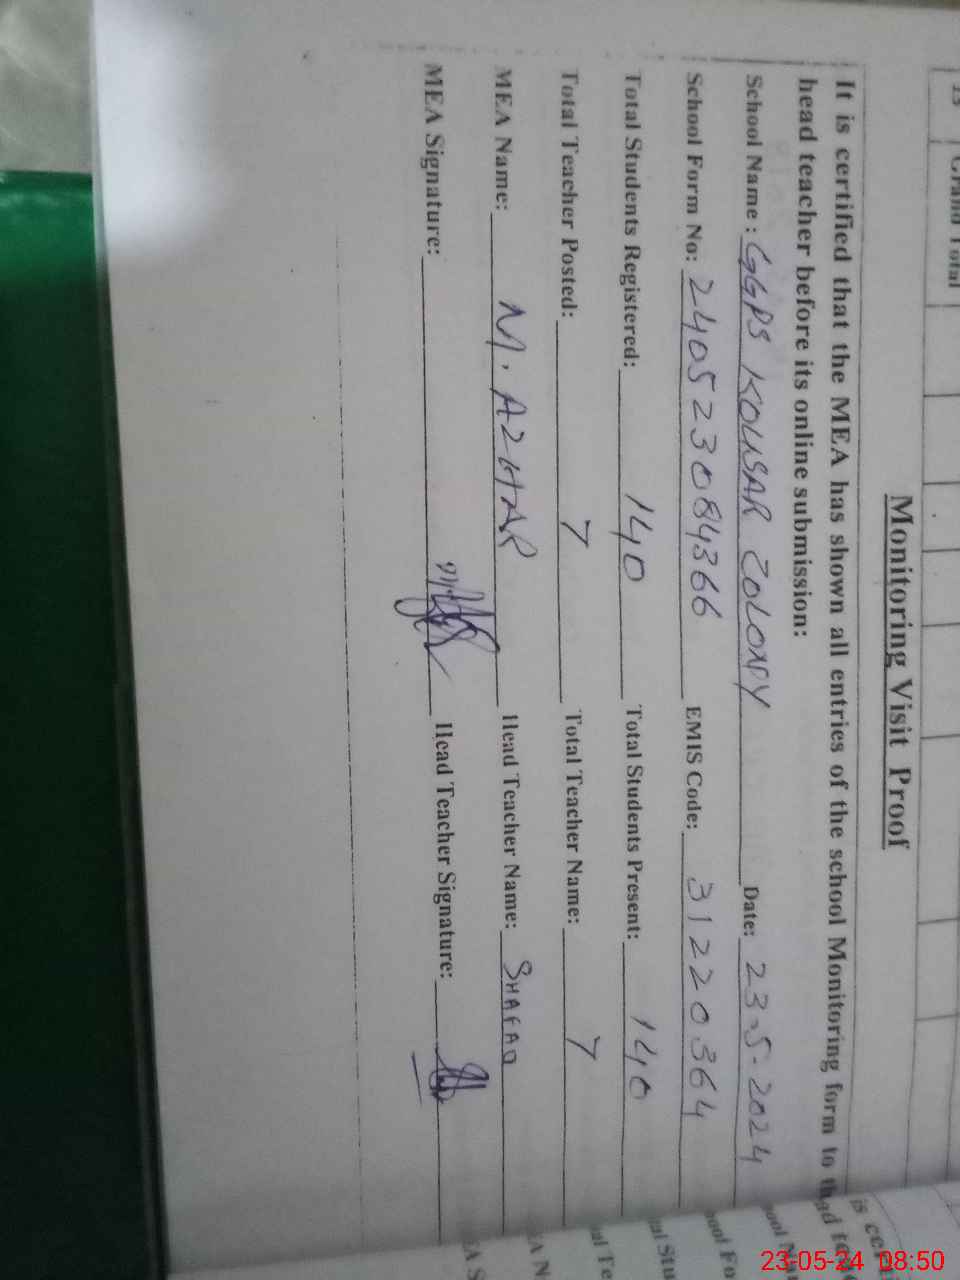 15 Grand Total
Monitoring Visit Proof
It is certified that the MEA has shown all entries of the school Monitoring form to
head teacher before its online submission:
School Name : GGPS KOUSAR COLONY Date: 23-5-2024
School Form No: 24052308 4366 EMIS Code: 31220364
Total Students Registered: 140 Total Students Present: 140
Total Teacher Posted: 7 Total Teacher Name: 7
MEA Name: M. AZHAR Head Teacher Name: SHAFAQ
MEA Signature: Head Teacher Signature:
23-05-24 08:50